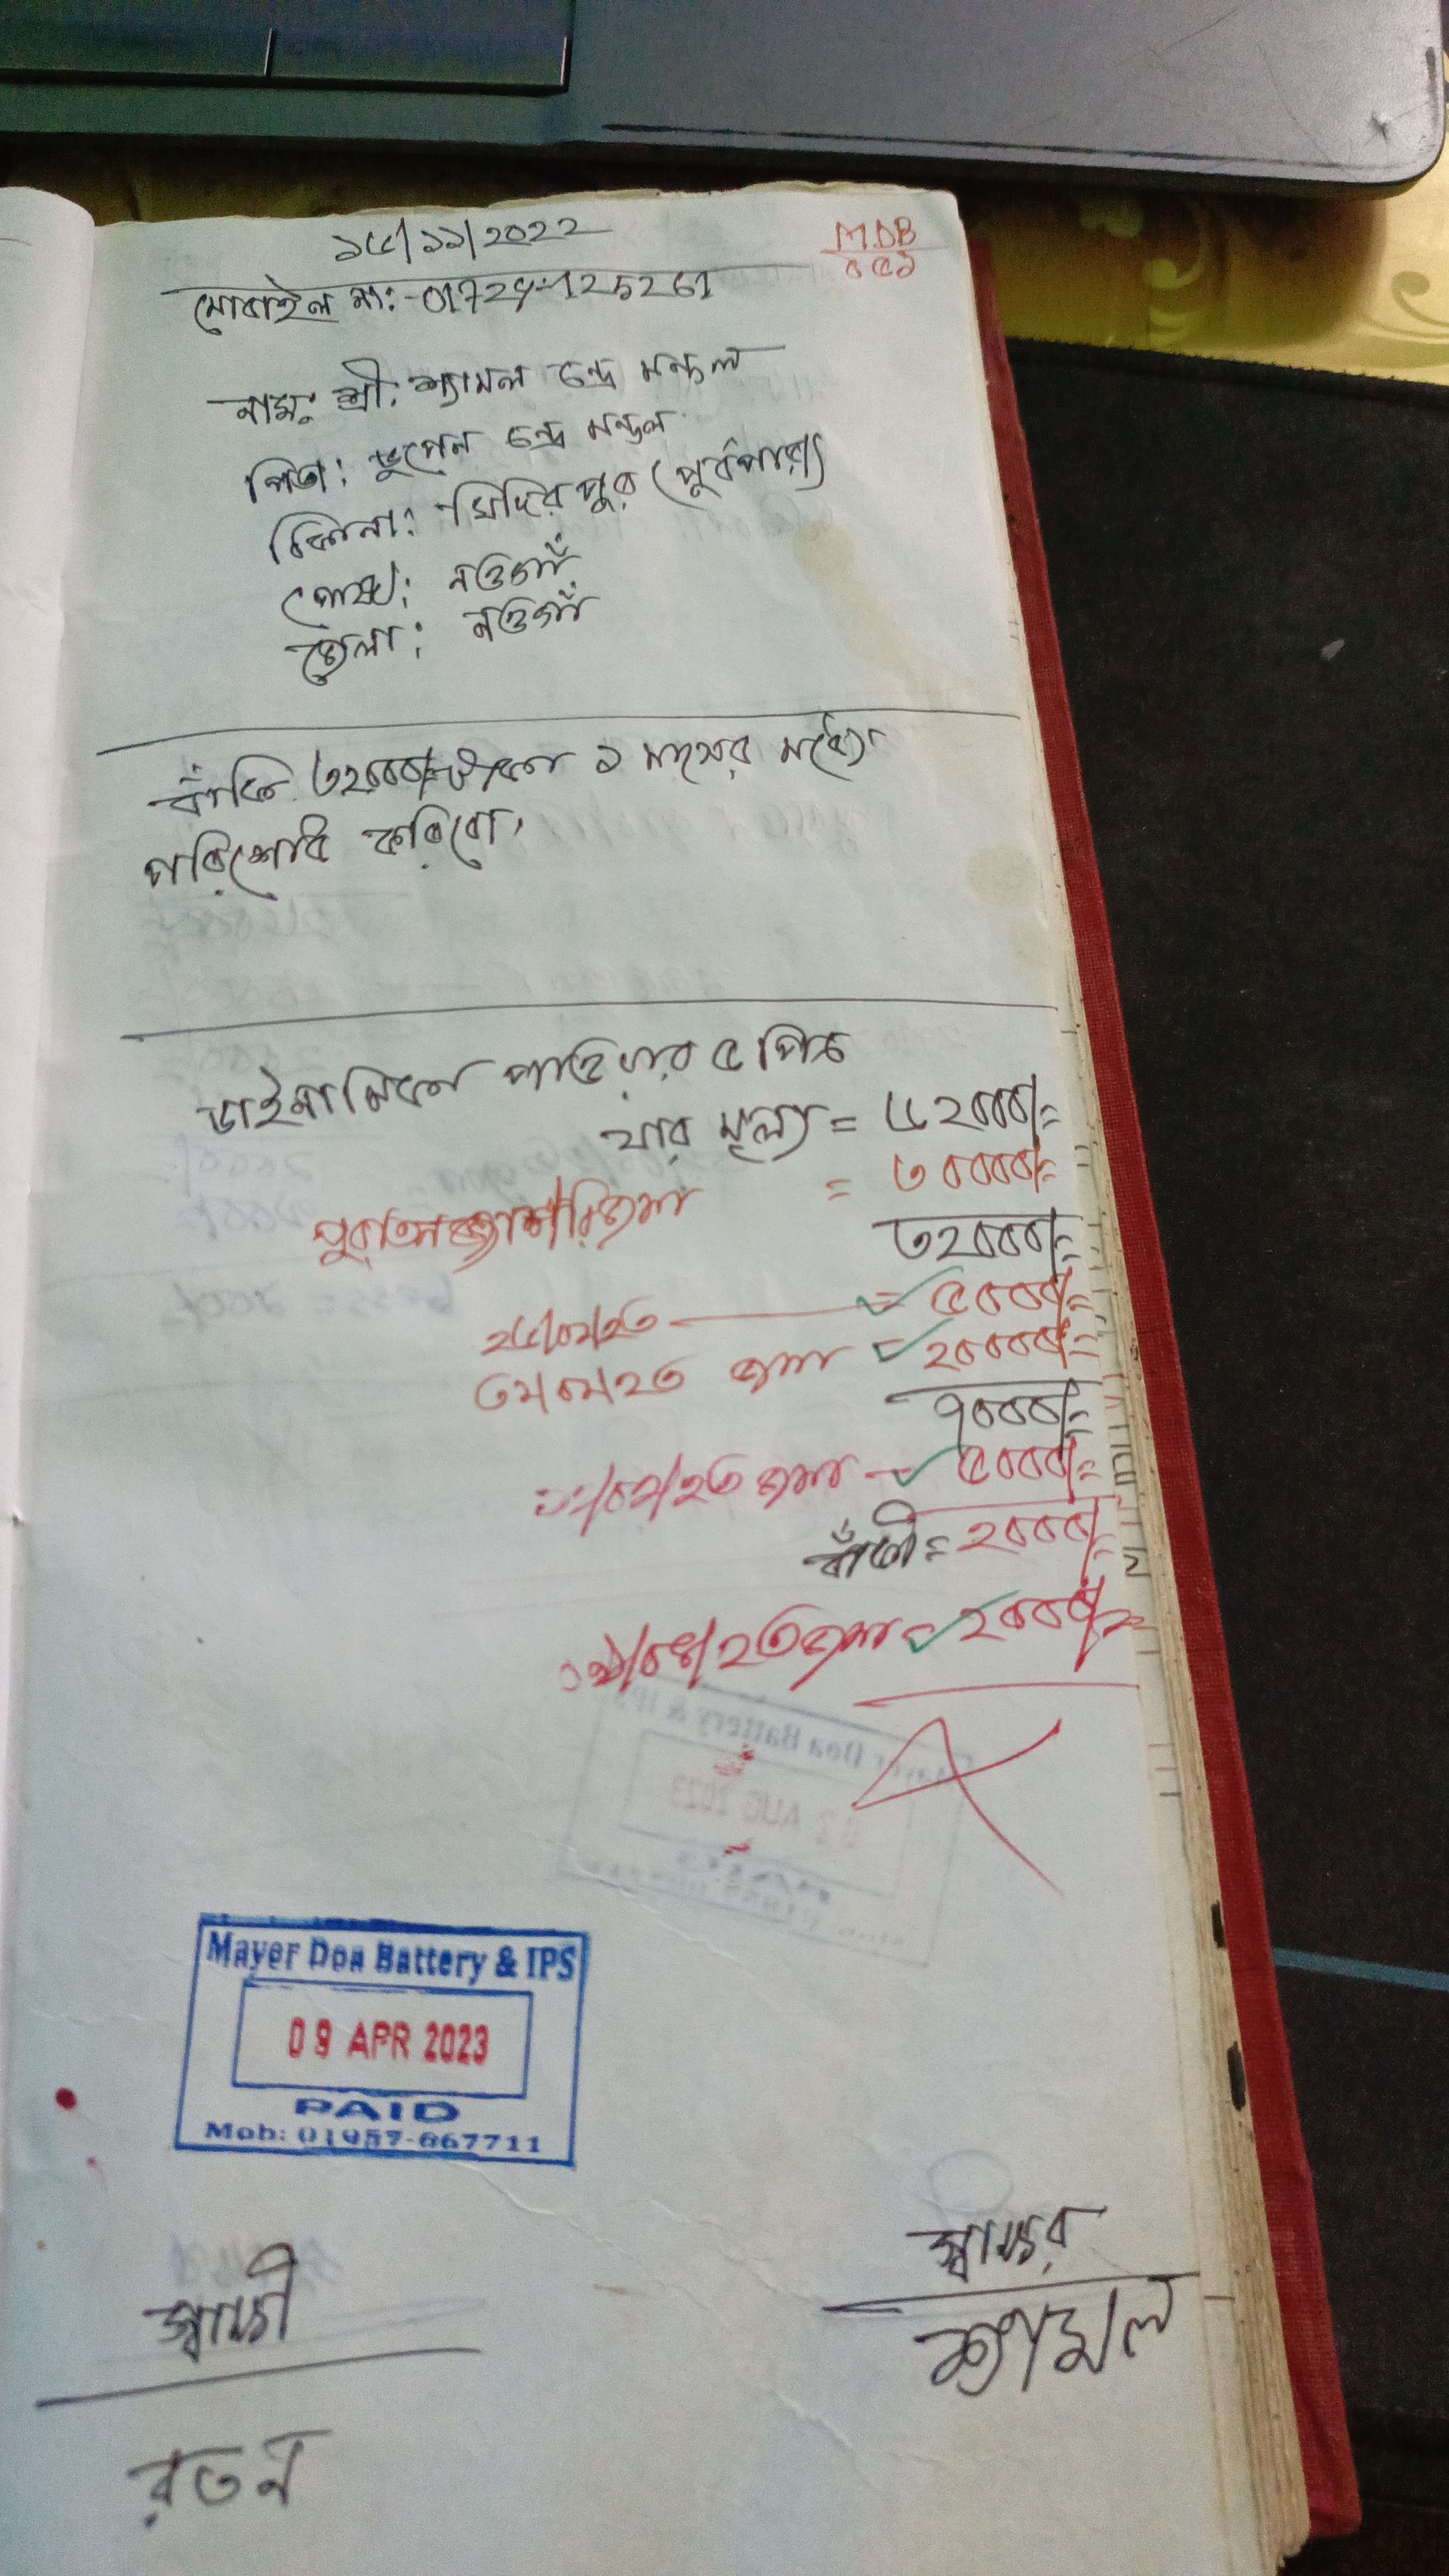 ১৫/১১/2022
M.D.B
০৫১
মোবাইল নং:-0172
নাম: শ্রী: শ্যামল চন্দ্র মন্ডল
পিতা: ভুপেন চন্দ্র মন্ডল
ঠিকানা: খিদিরপুর (পূর্বপাড়া)
পোষ্ট: নওগাঁ
জেলা: নওগাঁ
বাঁকি ৩২০০০/= টাকা ১ মাসের মধ্যে
পরিশোধ করিবো,
ডাইনামিক পাওয়ার ৫ পিচ
যার মূল্য = ৬২০০০/=
= ৩০০০০/=
৩২০০০/=
২৫/০১/২৩ = ৫০০০/=
৩১/০১/২৩ জমা = ২০০০০/=
৭০০০/=
/০২/২৩ জমা = ৫০০০/=
বাঁকী = ২০০০/=
০৯/০৪/২৩ জমা = ২০০০/=
Mayer Doa Battery & IPS
02 AUG 2023
Mayer Doa Battery & IPS
09 APR 2023
PAID
Mob: 01957-667711
স্বাক্ষী
রতন
স্বাক্ষর
শ্যামল